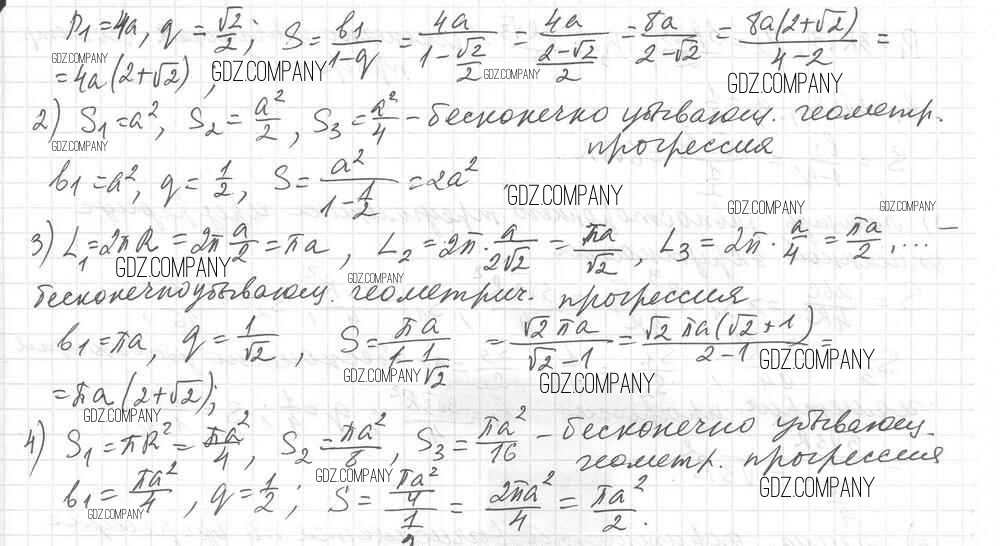 P₁ = 4a, q = √2/2; S = b₁/(1-q) = 4a/(1-√2/2) = 4a/((2-√2)/2) = 8a/(2-√2) = 8a(2+√2)/(4-2) =
GDZ.COMPANY
= 4a(2+√2), GDZ.COMPANY GDZ.COMPANY GDZ.COMPANY
2) S₁ = a², S₂ = a²/2, S₃ = a²/4 - бесконечно убывающ. геометр.
GDZ.COMPANY прогрессия
b₁ = a², q = 1/2, S = a²/(1-1/2) = 2a²
GDZ.COMPANY
GDZ.COMPANY GDZ.COMPANY
3) L₁ = 2πR = 2π a/2 = πa, L₂ = 2π · a/(2√2) = πa/√2, L₃ = 2π · a/4 = πa/2, ... -
GDZ.COMPANY GDZ.COMPANY
бесконечно убывающ. геометрич. прогрессия
b₁ = πa, q = 1/√2, S = πa/(1-1/√2) = √2πa/(√2-1) = √2πa(√2+1)/(2-1) =
GDZ.COMPANY GDZ.COMPANY GDZ.COMPANY
= πa(2+√2);
GDZ.COMPANY
4) S₁ = πR² = πa²/4, S₂ = πa²/8, S₃ = πa²/16 - бесконечно убывающ.
геометр. прогрессия
b₁ = πa²/4, q = 1/2; S = (πa²/4)/(1/2) = 2πa²/4 = πa²/2.
GDZ.COMPANY GDZ.COMPANY GDZ.COMPANY